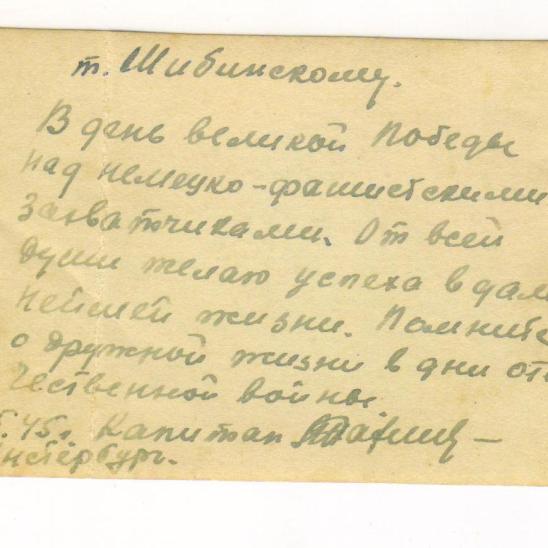 т. Шибинскому.
В день великой Победы
над немецко-фашистскими
захватчиками. От всей
души желаю успеха в дал
нейшей жизни. Помните
о дружной жизни в дни оте
чественной войны
.45г. Капитан
нстербург.